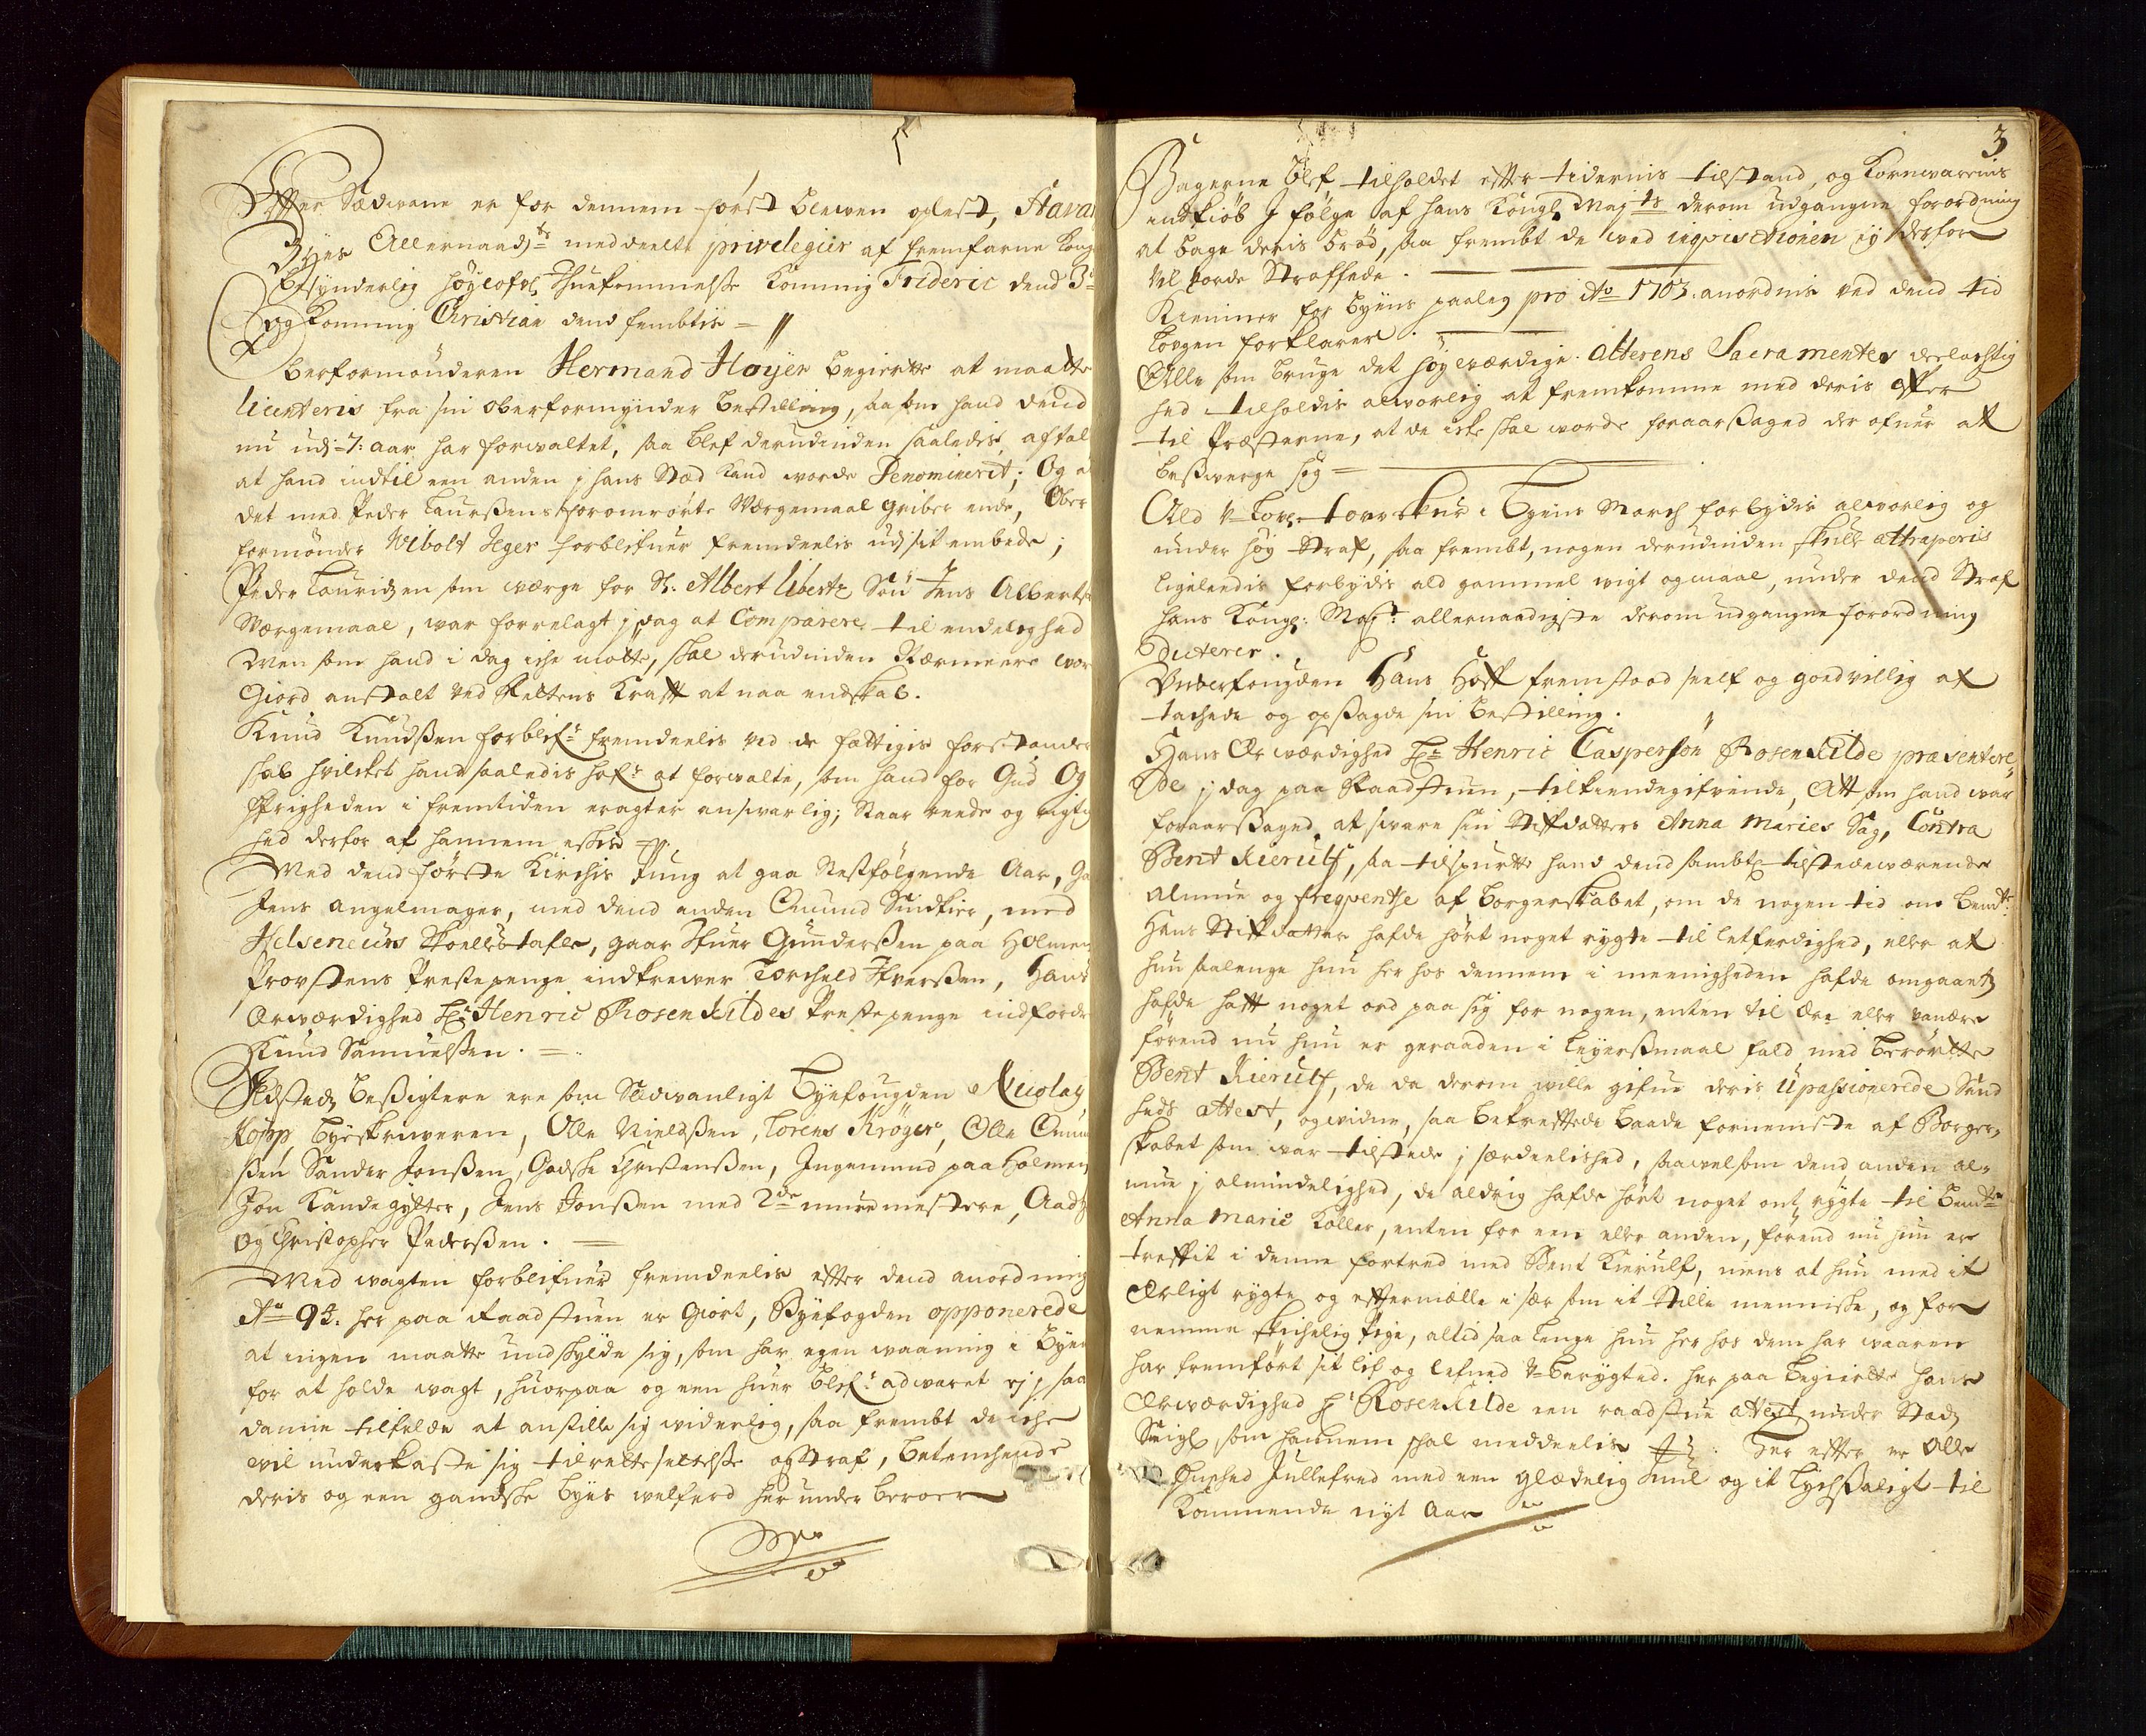 Effter Sædwane er for dennem først blewen oplest, Stavan
Byes Allernaadste meddeelte privelegier af fremfarne Kong
besynderlig høylofl Ihuekommelsse Konning Frideric dend 3die
og Konning Christian dend fembtis =
Oberformønderen Hermand Høyer begierte at maatte
licenteris fra sin Oberformynder bestilling, saasom hand dend
nu udj 7: aar har forwaltet, saa blef derudinden saaledis aftal
at hand indtil een anden j hans Sted kand worde Denominerit; Og a
det med Peder Laurssens foromrørte Wærgemaal griber ende, Ober
formønder Wibolt Jeger forblifuer fremdeelis udj sit embede;
Peder Lauridzen som werge for Sl: Albert Libertz Søn Jens Albertz
Wærgemaal, war forrelagt j dag at Comparere til endelighed
Men som hand i dag iche møtte, skal derudinden Nærmeere wor
Giord anstalt ved Rettens Krafft at naa endskab.
Knud Knudssen forblifr fremdeelis ved de fattigis forstander
skab hvilchet hand saaledis hafr at forwalte, som hand for Gud Og
Øfrigheden i fremtiden eragter answarlig; Staar reede og rigtig
hed derfor af hannem eskis
Med dend første Kirchis Pung at gaa Nestfølgende Aar, Ga
Jens angelmager, med dend anden Omund Sundkier, med
Helseneurs Skoells tafle, gaar Ifuer Gunderssen paa Holmen
Provstens Prestepenge indkrewer Torcheld Ifuerssen, Hans
Ærwærdighed Hr Henric Rosenkildes Prestepenge indfordr
Knud Samuelssen. =
Ildsteds Besigtere ere som Sædwanligt Byefougden Nicolay
Kopp, byeskriweren, Olle Nielssen, Lorens Krøger, Olle Omun
ssen Sander Jonssen, Gadske Christenssen, Ingemund paa Holmen
Jon Kandegytter, Jens Jonssen med 2de muurmestere, Aadz
og Christopher Pederssen. =
Med wagten forblifuer fremdeelis effter dend anordning
Ao 94. her paa Raadstuen er Giort, Byefogden opponerede
at ingen maatte undskylde sig, som har egen waaning i Byen
for at holde wagt, huorpaa og een huer blefr adwaret ej j saa
danne tilfelde at anstille sig widerlig, saa frembt de iche
wil underkaste sig tilrettesættelsse og Straf, betenchende
deris og een gandske byes welferd her under beroer
3
Bagerne blef tilholdet effter tidernis tilstand, og Kornwarernis
indkiøb I følge af hans Kongl Mayts derom udgangne forordning
at bage deris brød, saa frembt de wed inqvisitionen ey derfor
vil worde Straffede.
Kiemner for byens paaleg pro Ao 1703. anordnis ved dend tid
Lovgen forklarer.
Alle som bruge det høyværdige Alterens Sacramentes deelachtig
hed tilholdis alvorlig at fremkomme med deris offer
til Præsterne, at de iche skal worde foraarssaged der ofuer att
besswerge sig =
Ald u-lovl torvekiøb i Byens March forbydis alvorlig og
under høy Straf, saa frembt, nogen derudinden skulle attraperis
ligeleedis forbydis ald gammel wigt og maal, under dend Straf
hans Kongl: Mayts allernaadigste derom udgangne forordning
dicterer.
Underfougden Hans Hoff fremstoed self og goedvillig af
tachede og opssagde sin bestilling.
Hans Ærwærdighed Hr Henric Casperssøn Rosenkilde præsentere
de j dag paa Raadstuen, tilkiendegifvende, Att som hand war
foraarssaged, at sware sin Stifdatters Anna Maries Sag, Contra
Bent Kierulf, saa tilspurte hand dend sambtl tilstedewærende
almue og freqventse af borgerskabet, om de nogen tid om bemte
Hans Stifdatter hafde hørt noget rygte til letferdighed, eller at
hun saalenge hun her hos dennem i meenigheden hafde omgaaetz
hafde hafft noget ord paa sig for nogen, enten til Ære eller vanære
førend nu hun er geraaden i leyerssmaal fald med berørte
Bent Kierulf, da de derom wille gifue deris upassionerede Sand
heds attest, og vidne, saa bekreftede baade fornemste af Borger,
skabet som war tilstede j særdeelished, saawelsom dend anden al,
mue j almindelighed, de aldrig hafde hørt noget ont rygte til bemte
Anna Marie Koller, enten for een eller anden, førend nu hun er
treffit i denne fortred med Bent Kierulf, mens at hun med it
Ærligt rygte og eftermælle i sær som it Stille menniske, og for
nemme skichelig Pige, altid saa lenge hun her hos dem har waaren
har fremført sit lif og lefned u-berygted. her paa begierte hans
Ærwærdighed Hr Rosenkilde een raadstue attest under Stads
Seigl, som hannem skal meddeelis. Der effter er alle
Ønsched Jullefred med een glædelig Juul og it lychssaligt til
Kommende nyt Aar